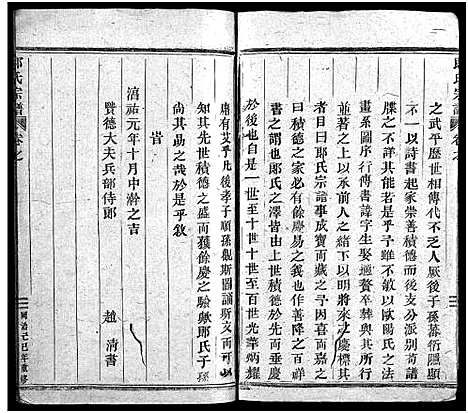 郎氏宗譜
卷之
之武平歷世相傳代不乏人厥後子孫蕃衍隱顯
不一以詩書起家崇善積德而後支分派別苟譜
牒之不詳其能居於悠久哉於是以歐陽氏之法
畫系圖序行傳書諱字生娶適贅卒葬與其實功
並著之以承前人之緒下以明將來之慶標其
者目曰郎氏宗譜事成寶而藏之予因喜而嘉之
曰積德之家必有餘慶易之我也作善降之百祥
書之所謂也郎氏之澤皆由古以德而致今發
於後也自是一世至十世十世至百世光華炳耀
庸有艾乎凡後孝子順孫觀斯圖誦斯文而可以
知其先世積德之盛而獲餘慶之驗歟郎氏子孫
尚其勗之哉於是乎敘
旹
淳祐元年十月中澣之吉
賢德大夫兵部侍郎
趙 清書
郎氏宗譜
卷之
同治己巳年重修